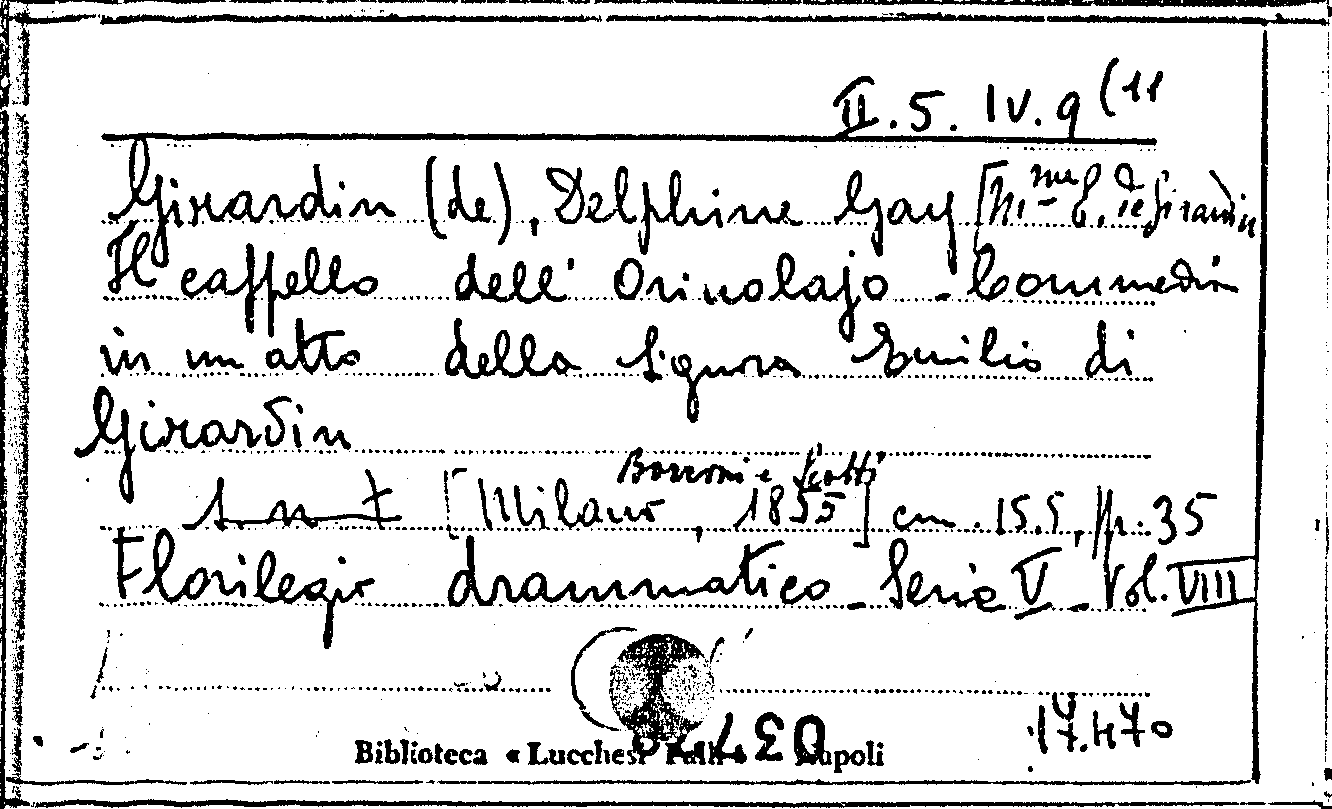 II.5. IV.9 (11
Girardin (de), Delphine Gay [M.me E. de Girardin
Il cappello dell' Oriuolajo - Commedia
in un atto della Signora Emilio di
Girardin
Borroni e Scotti
s. n. t. [Milano, 1855] cm. 15.5, pp. 35
Florilegio drammatico - Serie V - Vol. VIII
Biblioteca « Lucchesi Palli » Napoli